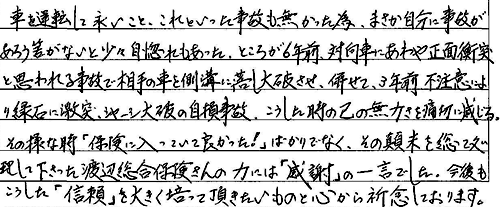 車を運転して永いこと、これといった事故も無かった為、まさか自分に事故が
あろう筈がないと少々自惚れもあった。ところが6年前、対向車にあわや正面衝突
と思われる事故で相手の車を側溝に落し大破させ、併せて、3年前不注意によ
り縁石に激突、シャーシ大破の自損事故、こうした時の己の無力さを痛切に感じる。
その様な時「保険に入っていて良かった!」ばかりでなく、その顛末を総て処
理して下さった渡辺総合保険さんの力には「感謝」の一言でした。今後も
こうした「信頼」を大きく培って頂きたいものと心から祈念しております。